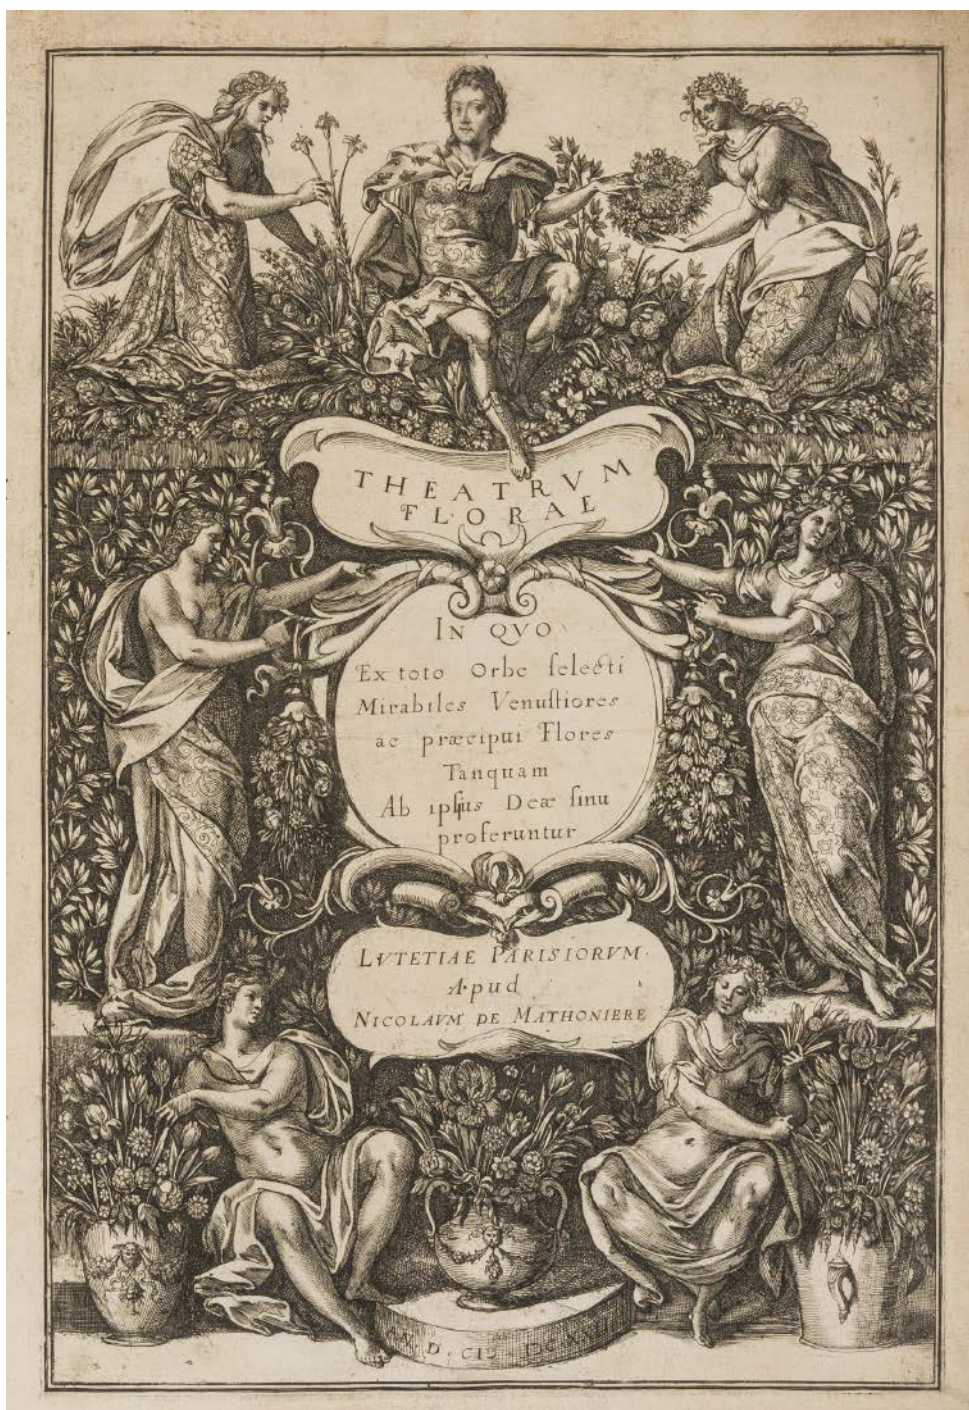 THEATRVM
FLORAE
IN QVO
Ex toto Orbe ſelecti
Mirabiles Venuſtiores
ac præcipui Flores
Tanquam
Ab ipſius Deæ ſinu
proferuntur
LVTETIAE PARISIORVM.
Apud
NICOLAVM DE MATHONIERE